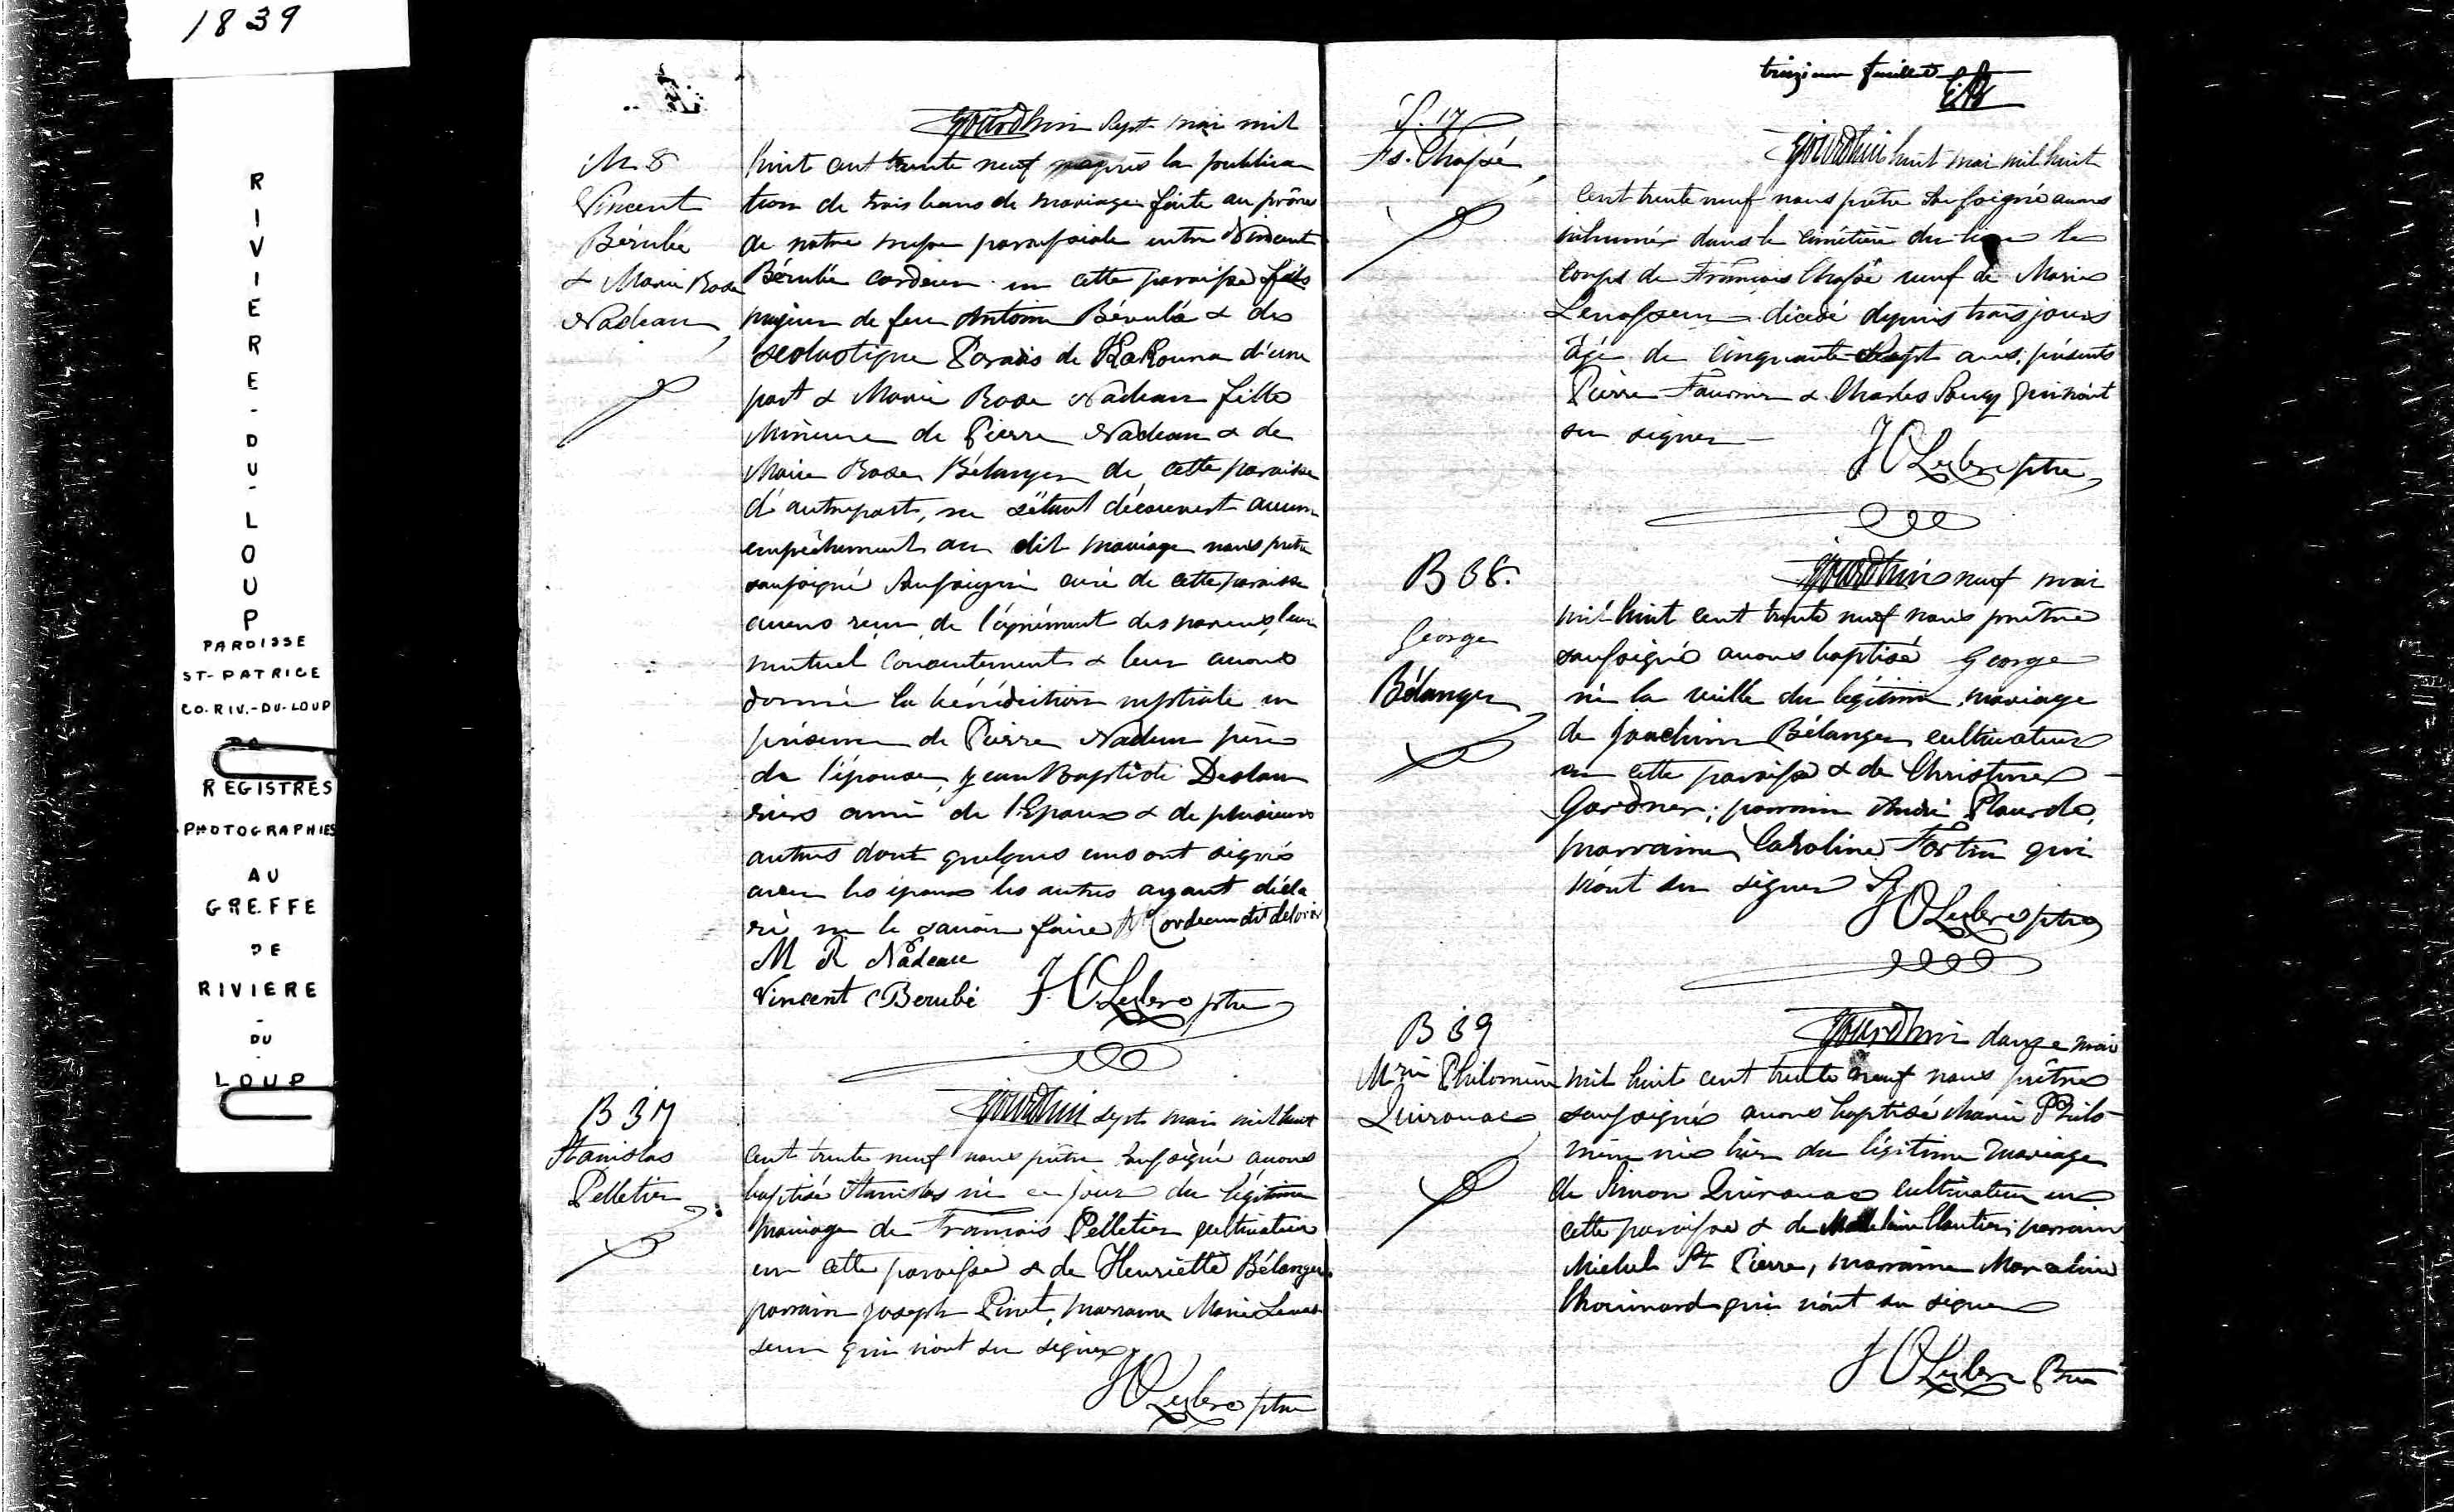 1839
RIVIERE-DU-LOUP
PAROISSE
ST-PATRICE
CO. RIV.-DU-LOUP
REGISTRES
PHOTOGRAPHIES
AU
GREFFE
DE
RIVIERE
-
DU
-
LOUP
M 8
Vincent
Bérubé
& Marie Rose
Nadeau
Jourdhui Sept mai mil
huit cent trente neuf après la publica
tion de trois bans de mariage faite au prône
de notre messe paroissiale entre Vincent
Bérubé cordeur en cette paroisse fils
majeur de feu Antoine Bérubé & de
Scolastique Paradis de KaKouna d'une
part & Marie Rose Nadeau fille
Mineure de Pierre Nadeau & de
Marie Rose Bélanger de cette paroisse
d'autrepart, ne s'étant découvert aucun
empêchement au dit mariage nous prêtre
soussigné Soussigné curé de cette paroisse
avons reçu de l'agrément des parens, leur
mutuel consentement & leur avons
donné la bénédiction nuptiale en
présence de Pierre Nadeau père
de l'épouse, Jean Baptiste Deslau
riers ami de l'Epoux & de plusieurs
autres dont quelques uns ont signés
avec les époux les autres ayant décla
ré ne le savoir faire
M R Nadeau
Vincent Berubé ptre
B 37
Stanislas
Pelletier
Jourdhui sept mai mil huit
cent trente neuf nous prêtre soussigné avons
baptisé Stanislas né ce jour du légitime
mariage de Francois Pelletier cultivateur
en cette paroisse & de Henriette Bélanger
parrain Joseph Pinet, marraine Marie Levas
seur qui n'ont su signer.
ptre
treizieme feuillet
S. 17
Fs. Chassé
Jourdhui huit mai mil huit
cent trente neuf nous prêtre soussigné avons
inhumé dans le cimétière du lieu le
corps de François Chassé veuf de Marie
Levasseur décédé depuis trois jours
âgé de cinquante Sept ans; présents
Pierre Fournier & Charles Soucy qui n'ont
su signer
ptre
B 38.
George
Bélanger
Jourdhui neuf mai
mil huit cent trente neuf nous prêtre
soussigné avons baptisé George
né la veille du légitime mariage
de Joachim Bélanger cultivateur
en cette paroisse & de Christine
Gardner; parrain André Plourde,
marraine Caroline Fortin qui
n'ont su signer
ptre
B 39
Mrie Philomène
Quirouac
Jourdhui douze mai
mil huit cent trente neuf nous prêtre
soussigné avons baptisé Marie Philo-
mène née hier du légitime mariage
de Simon Quirouac cultivateur en
cette paroisse & de parrain
Michel St Pierre, marraine
Chouinard qui n'ont su signer